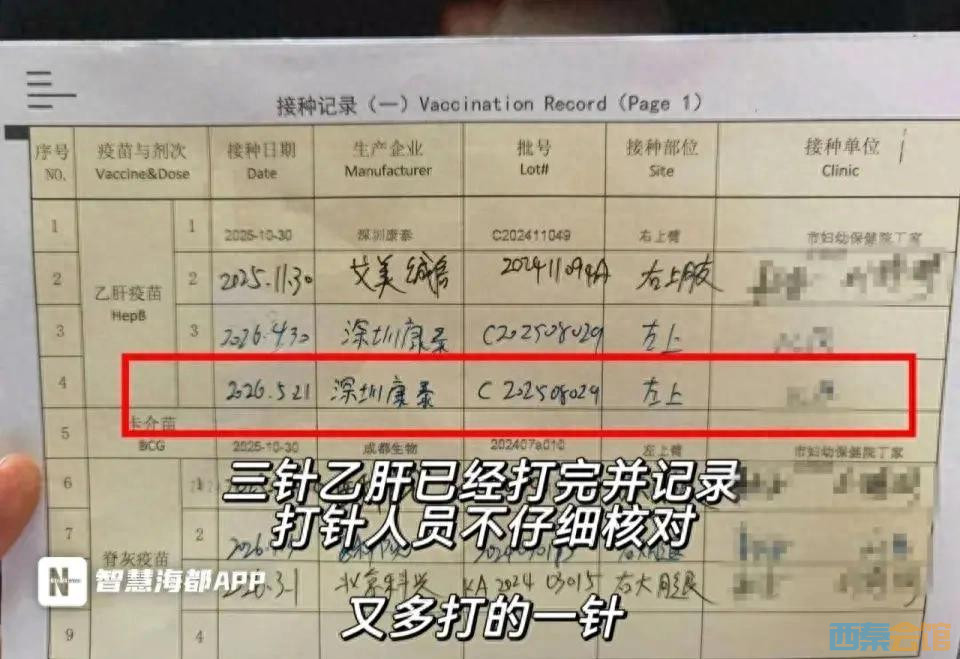 接种记录（一）Vaccination Record（Page 1）
序号 疫苗与剂次 接种日期 生产企业 批号 接种部位 接种单位
NO. Vaccine&Dose Date Manufacturer Lot# Site Clinic
1 1 2025-10-30 深圳康泰 C202411049 右上臂 市妇幼保健院丁家
2 2 2025.11.30 艾美 右上
乙肝疫苗
HepB
3 3 2026.4.30 深圳康泰 C202508029 左上
4 2026.5.21 深圳康泰 C202508029 左上
5 卡介苗
BCG 2025-10-30 成都生物 202407a010 左上臂 市妇幼保健院丁家
三针乙肝已经打完并记录
6 1
打针人员不仔细核对
7 2
脊灰疫苗
北京科兴 KA 2024 03015
N 智慧海都APP
又多打的一针
9 4
西秦会馆